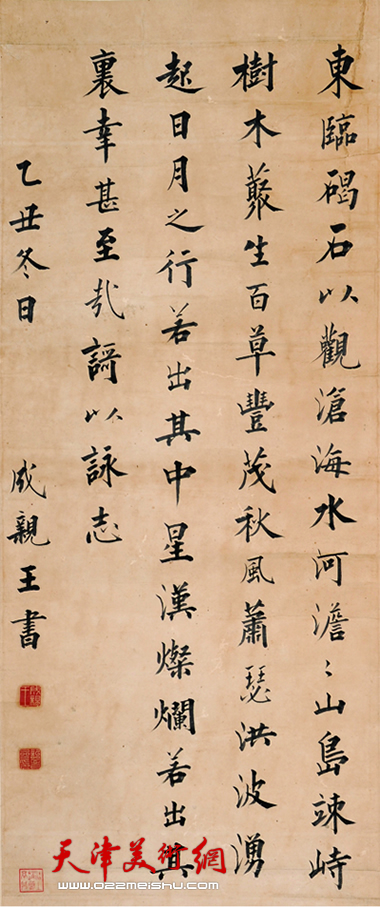 東臨碣石以觀滄海水河澹〻山島竦峙
樹木藂生百草豐茂秋風蕭瑟洪波湧
起日月之行若出其中星漢燦爛若出其
裏幸甚至哉謌以詠志
乙丑冬日
成親王書
天津美術網
www.022meishu.com